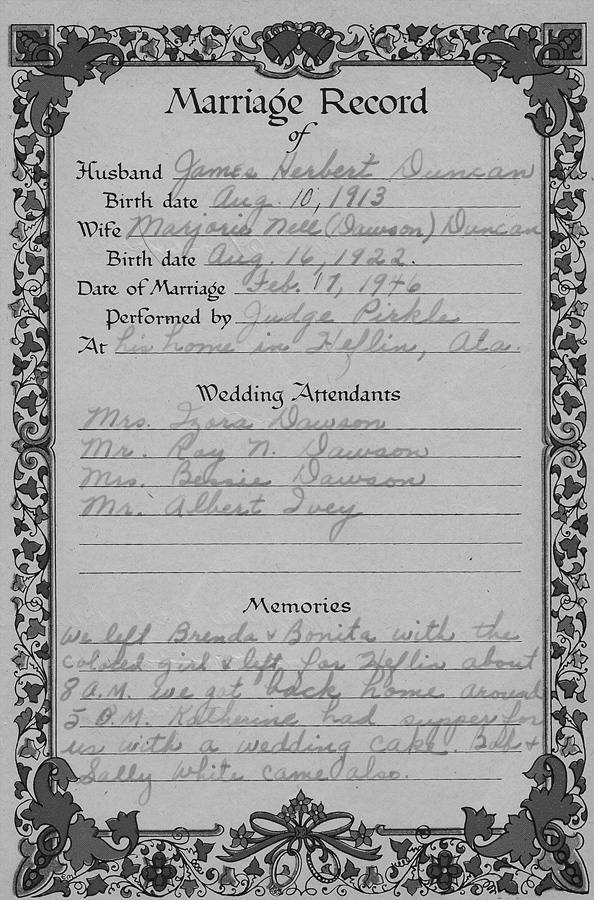 Marriage Record
of
Husband James Herbert Duncan
Birth date Aug. 10, 1913
Wife Marjorie Nell (Dawson) Duncan
Birth date Aug. 16, 1922.
Date of Marriage Feb. 17, 1946
Performed by Judge Pirkle
At his home in Heflin, Ala.
Wedding Attendants
Mrs. Izora Dawson
Mr. Roy N. Dawson
Mrs. Bessie Dawson
Mr. Albert Ivey
Memories
We left Brenda & Bonita with the
colored girl & left for Heflin about
8 A.M. We got back home around
5 P.M. Katherine had supper for
us with a wedding cake. Bill &
Sally White came also.